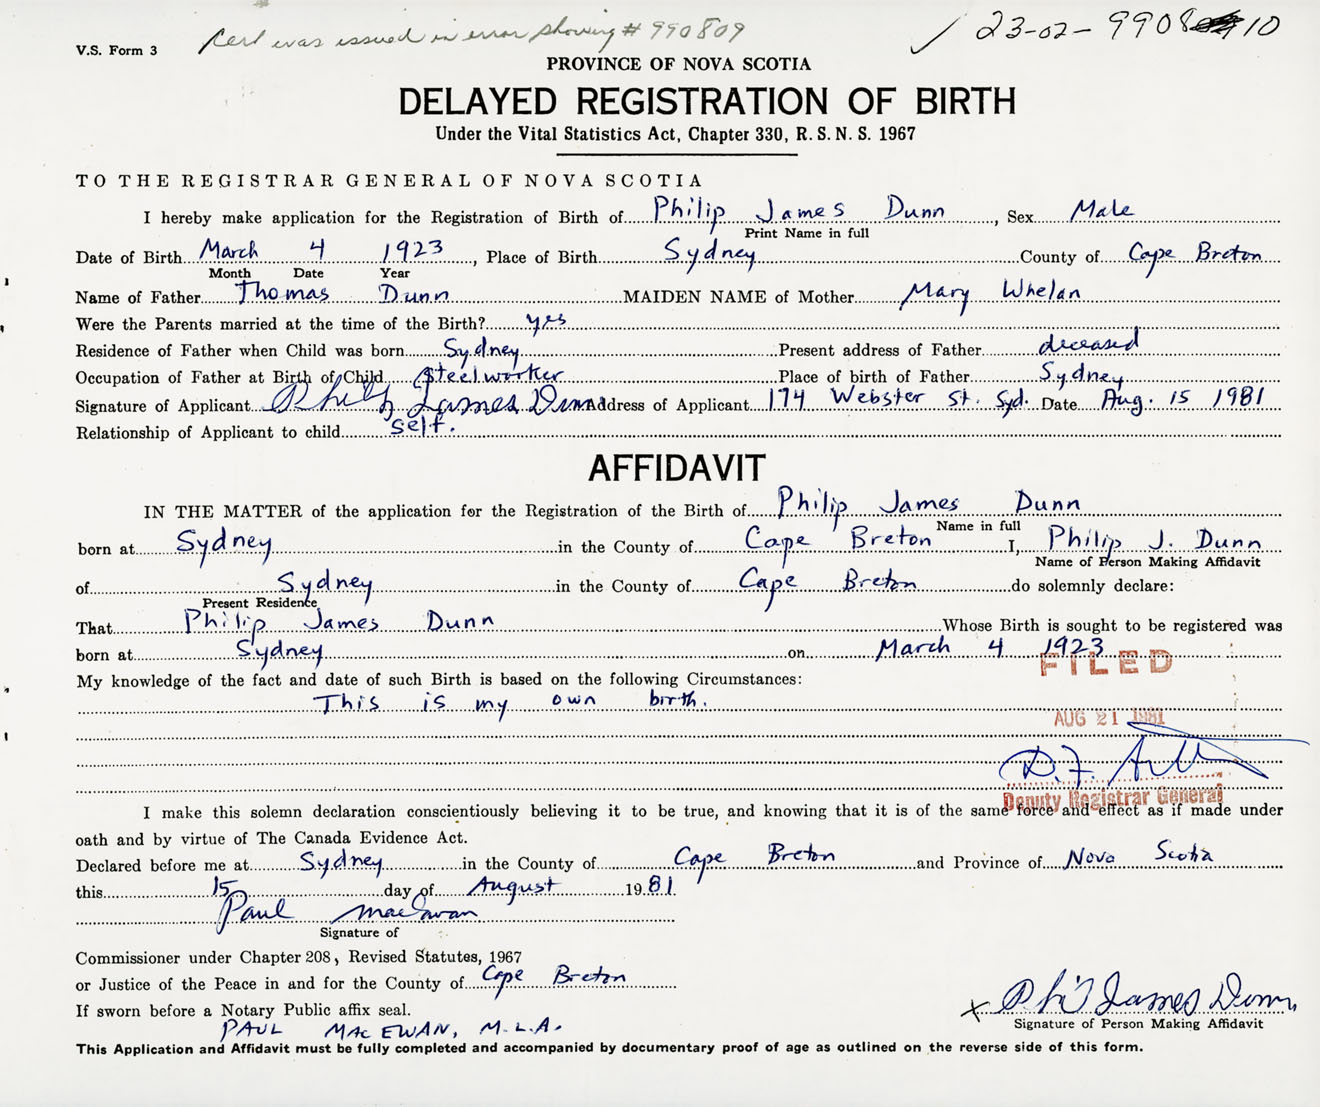 V.S. Form 3 Cert was issued in error showing # 990809 23-02-9908 10
PROVINCE OF NOVA SCOTIA
DELAYED REGISTRATION OF BIRTH
Under the Vital Statistics Act, Chapter 330, R. S. N. S. 1967
TO THE REGISTRAR GENERAL OF NOVA SCOTIA
I hereby make application for the Registration of Birth of Philip James Dunn, Sex Male
Print Name in full
Date of Birth March 4 1923, Place of Birth Sydney County of Cape Breton
Month Date Year
Name of Father Thomas Dunn MAIDEN NAME of Mother Mary Whelan
Were the Parents married at the time of the Birth? yes
Residence of Father when Child was born Sydney Present address of Father deceased
Occupation of Father at Birth of Child Steelworker Place of birth of Father Sydney
Signature of Applicant Philip James Dunn Address of Applicant 174 Webster St. Syd. Date Aug. 15 1981
Relationship of Applicant to child self.
AFFIDAVIT
IN THE MATTER of the application for the Registration of the Birth of Philip James Dunn
Name in full
born at Sydney in the County of Cape Breton I, Philip J. Dunn
Name of Person Making Affidavit
of Sydney in the County of Cape Breton do solemnly declare:
Present Residence
That Philip James Dunn Whose Birth is sought to be registered was
born at Sydney on March 4 1923
FILED
My knowledge of the fact and date of such Birth is based on the following Circumstances:
This is my own birth.
AUG 21 1981
D.F.
Deputy Registrar General
I make this solemn declaration conscientiously believing it to be true, and knowing that it is of the same force and effect as if made under
oath and by virtue of The Canada Evidence Act.
Declared before me at Sydney in the County of Cape Breton and Province of Nova Scotia
this 15 day of August 1981.
Paul MacEwan
Signature of
Commissioner under Chapter 208, Revised Statutes, 1967
or Justice of the Peace in and for the County of Cape Breton
If sworn before a Notary Public affix seal.
PAUL MacEWAN, M.L.A.
x Phil James Dunn
Signature of Person Making Affidavit
This Application and Affidavit must be fully completed and accompanied by documentary proof of age as outlined on the reverse side of this form.